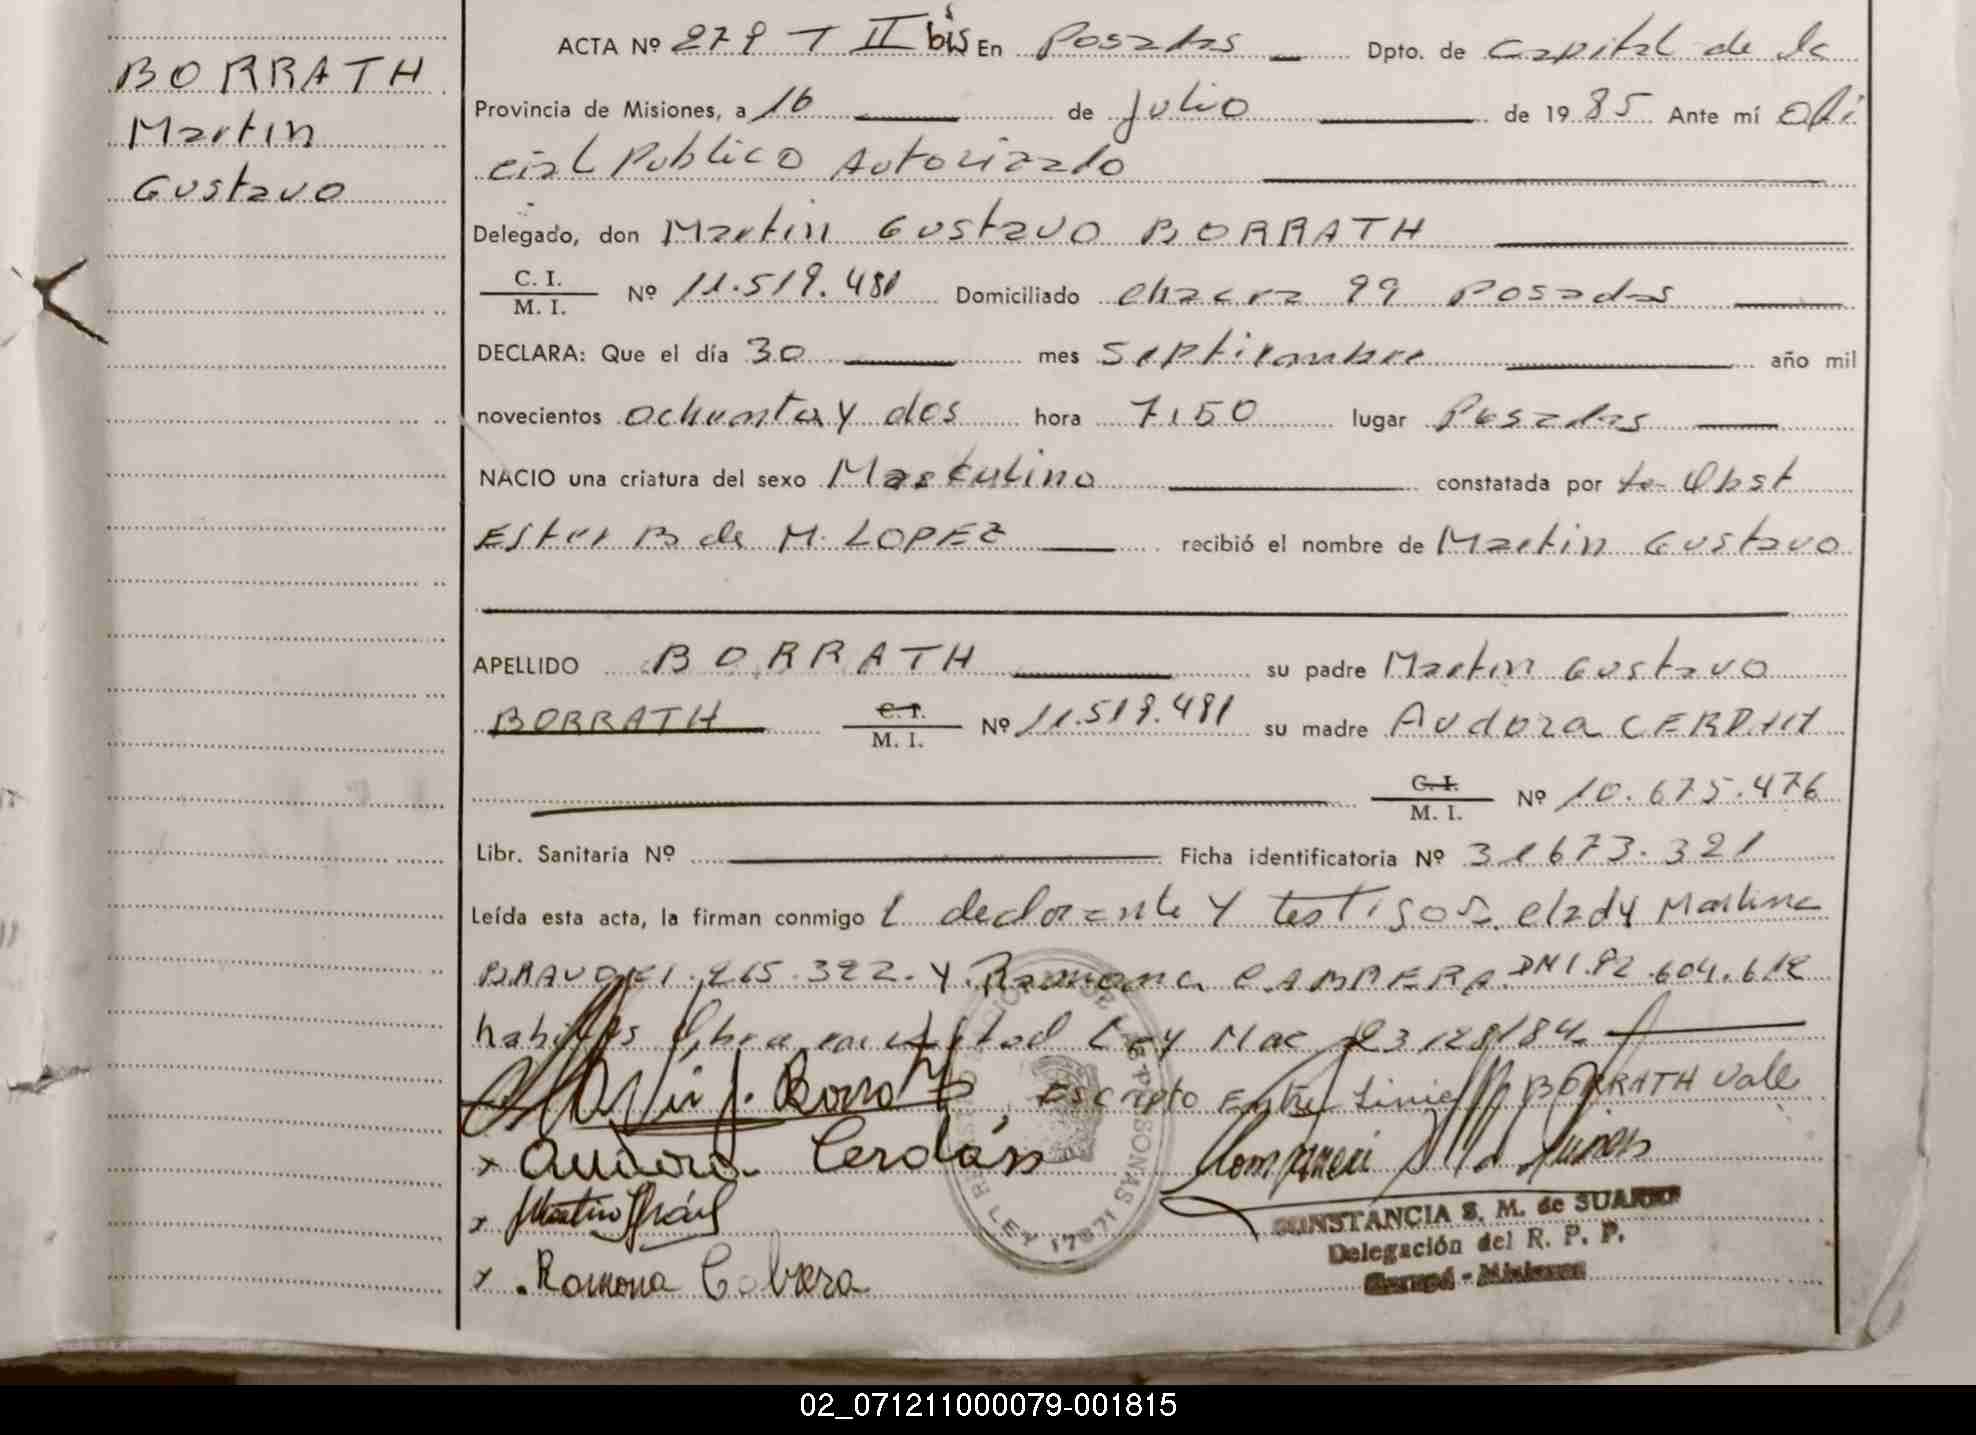 BORRATH
Martin
Gustavo
ACTA Nº 279 T II bis En Posadas Dpto. de Capital de la
Provincia de Misiones, a 16 de Julio de 1985 Ante mí Ofi
cial Publico Autorizado
Delegado, don Martin Gustavo BORRATH
C. I. / M. I. Nº 11.519.481 Domiciliado chacra 99 Posadas
DECLARA: Que el día 30 mes Septiembre año mil
novecientos ochenta y dos hora 7,50 lugar Posadas
NACIO una criatura del sexo Masculino constatada por Obst
Ester B de M. LOPEZ recibió el nombre de Martin Gustavo
APELLIDO BORRATH su padre Martin Gustavo
BORRATH C. I. / M. I. Nº 11.519.481 su madre Audora CERDAN
C. I. / M. I. Nº 10.675.476
Libr. Sanitaria Nº Ficha identificatoria Nº 31673.321
Leída esta acta, la firman conmigo l declarante y testigos. elady Martina
BRAVO 265.322. y Ramona CABRERA DNI. 92.604.612
habiles Ley Nac 23128/84
Escripto Entre Linie BORRATH Vale
x Audora Cerdán
x Martin
x Ramona Cabrera
REGISTRO PERSONAS LEY 17671
CONSTANCIA S. M. de SUAREZ
Delegación del R. P. P.
Garupá - Misiones
02_071211000079-001815